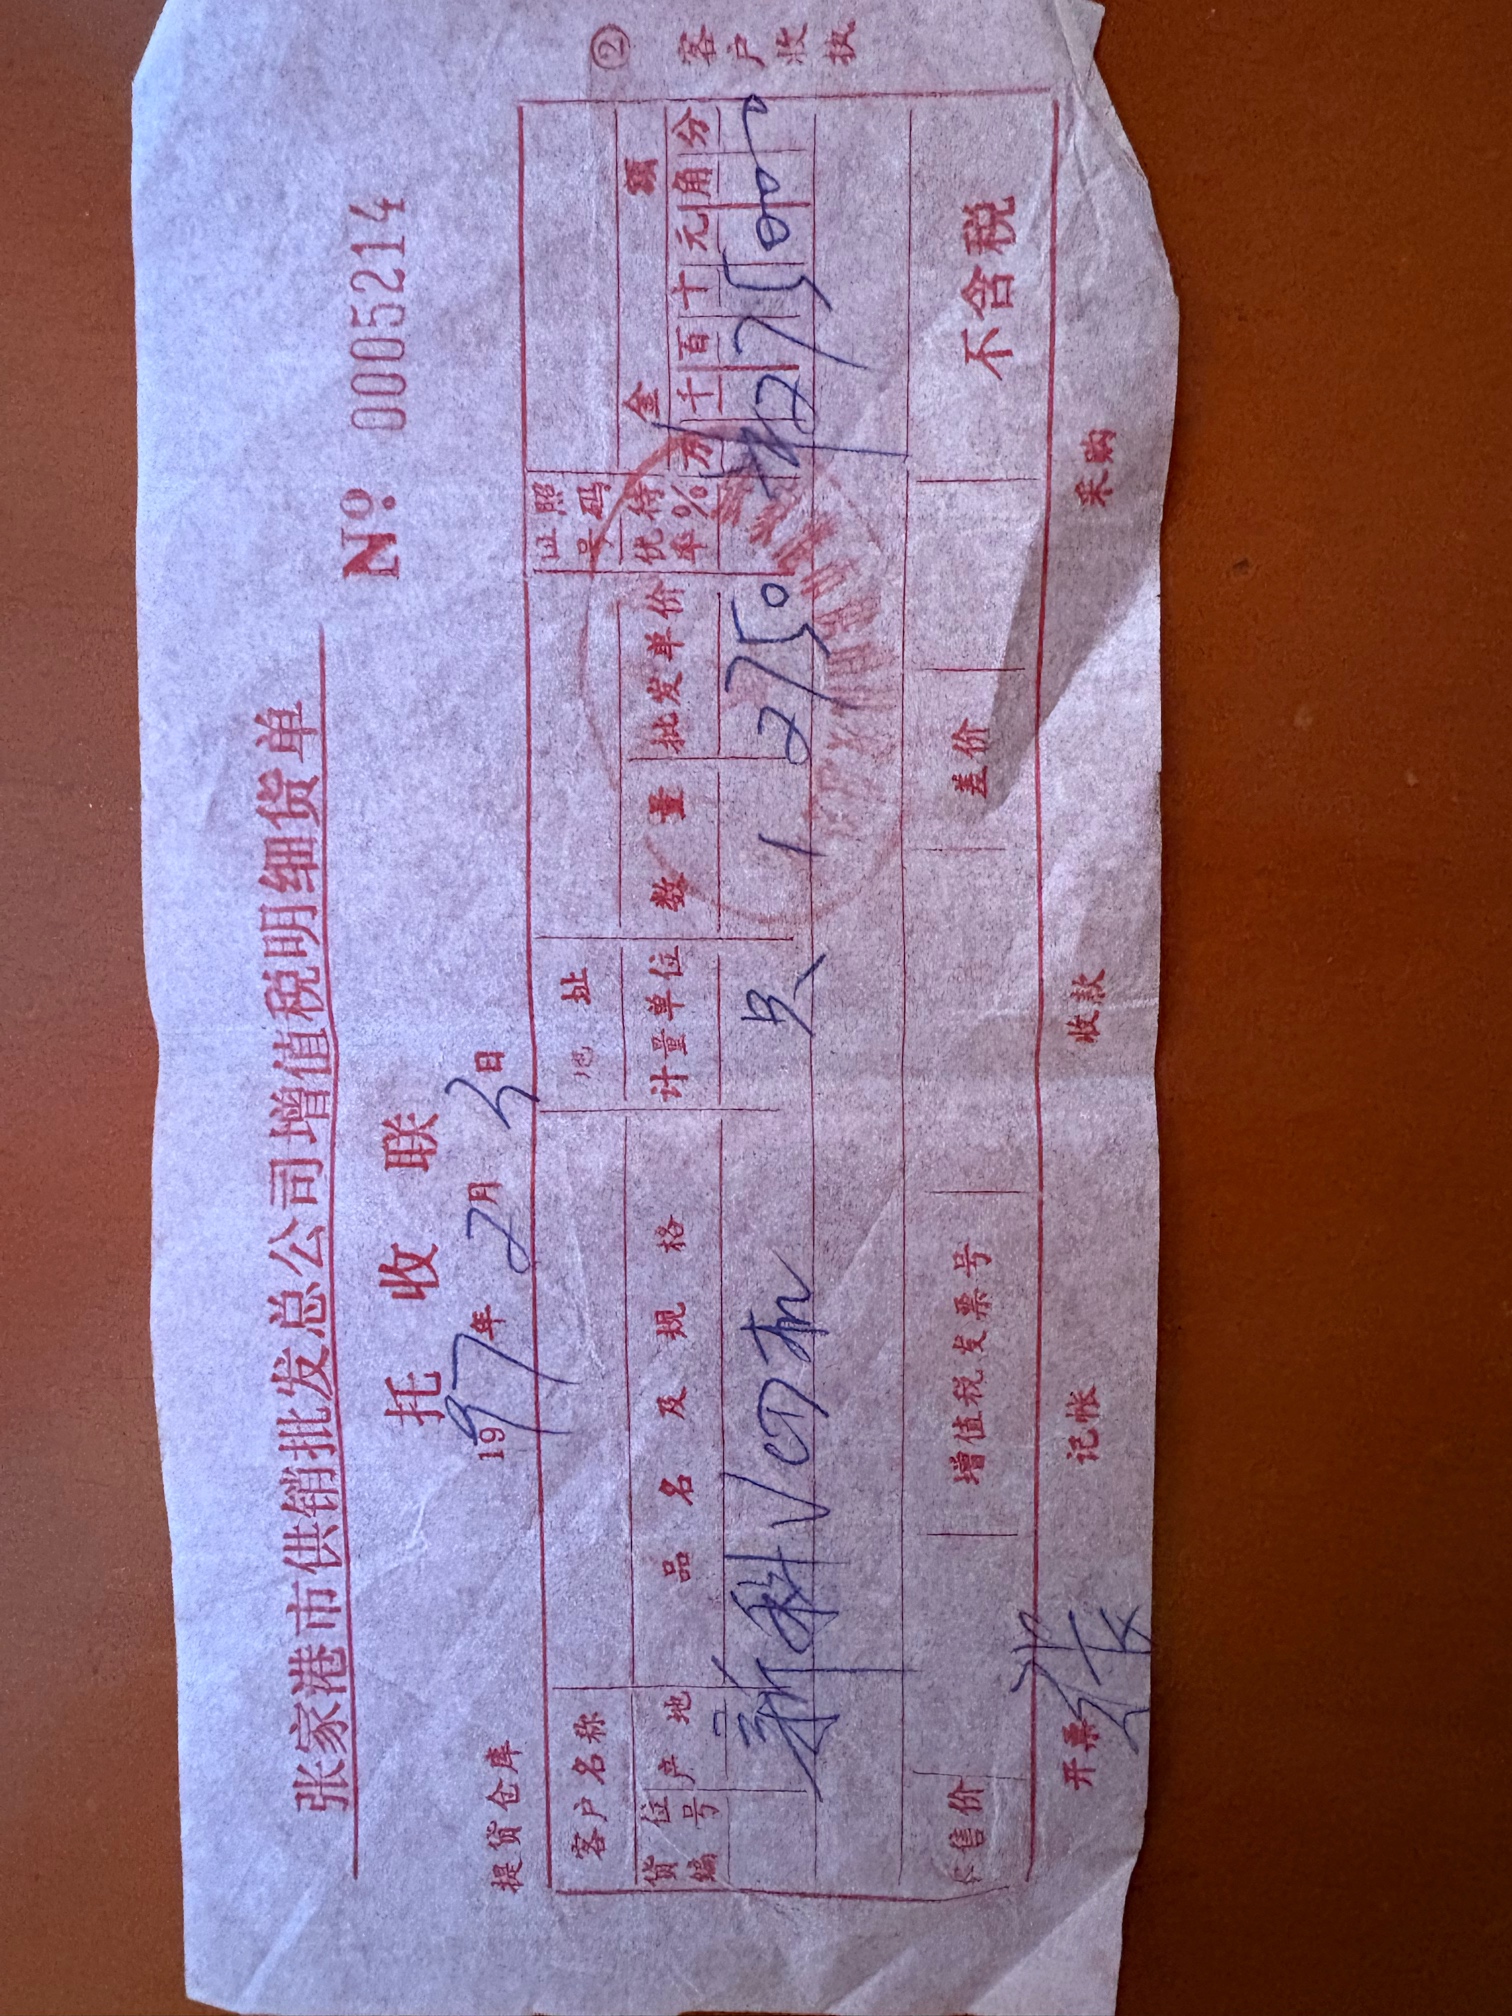 张家港市供销批发总公司增值税明细货单
托收联
№ 0005214
提货仓库
1997年2月 日
客户名称
地址
证照号码
货位编号
产地
品名及规格
计量单位
数量
批发单价
优待率%
金额
万千百十元角分
新科VCD机
只
1
2750
¥275000
零售价
增值税发票号
差价
不含税
开票
张
记帐
收款
采购
② 客户收执